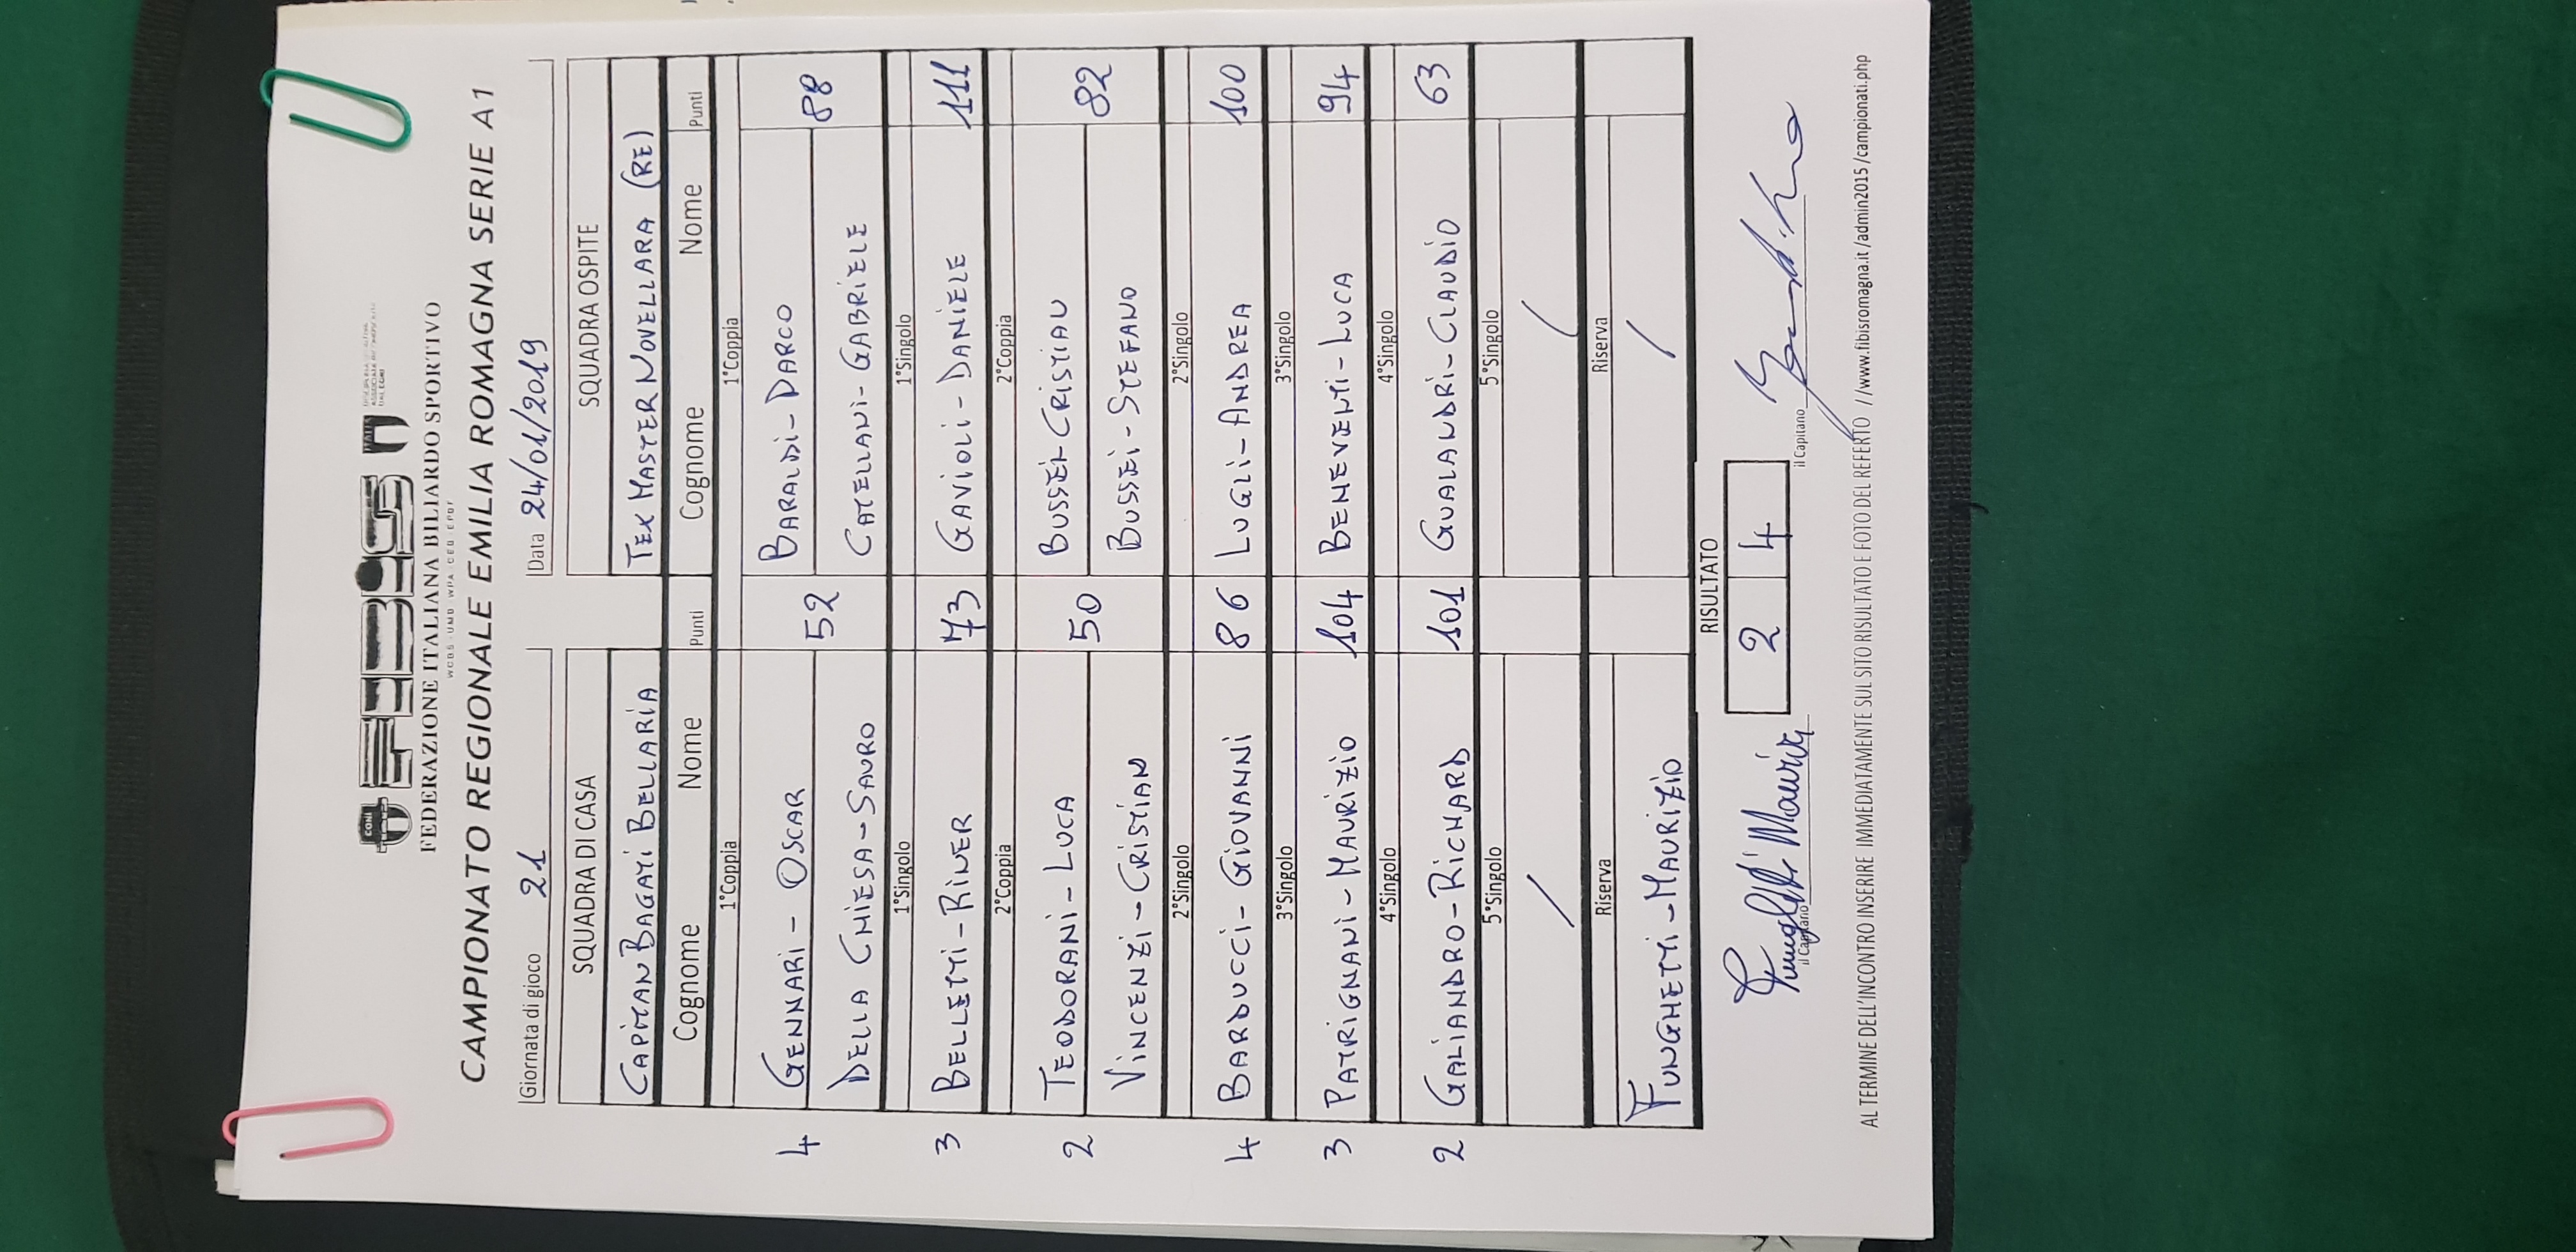 CONI
FIBIS
ITALIA
FEDERAZIONE ITALIANA BILIARDO SPORTIVO
WCBS UMB WPA CEB EPBF
CAMPIONATO REGIONALE EMILIA ROMAGNA SERIE A1
Giornata di gioco 21 Data 24/01/2019
SQUADRA DI CASA SQUADRA OSPITE
CAPITAN BAGATI BELLARIA TEX MASTER NOVELLARA (RE)
Cognome Nome Punti Cognome Nome Punti
1°Coppia 1°Coppia
4 GENNARI - OSCAR 52 BARALDI - DARCO 88
DELLA CHIESA - SAURO CATELLANI - GABRIELE
1°Singolo 1°Singolo
3 BELLETTI - RINER 73 GAVIOLI - DANIELE 111
2°Coppia 2°Coppia
2 TEODORANI - LUCA 50 BUSSEI - CRISTIAN 82
VINCENZI - CRISTIAN BUSSEI - STEFANO
2°Singolo 2°Singolo
4 BARDUCCI - GIOVANNI 86 LUGLI - ANDREA 100
3°Singolo 3°Singolo
3 PATRIGNANI - MAURIZIO 104 BENEVENTI - LUCA 94
4°Singolo 4°Singolo
2 GALIANDRO - RICHARD 101 GUALANDRI - CLAUDIO 63
5°Singolo 5°Singolo
/ /
Riserva Riserva
FUNGHETTI - MAURIZIO /
RISULTATO
2 4
il Capitano Funghetti Maurizio il Capitano
AL TERMINE DELL'INCONTRO INSERIRE IMMEDIATAMENTE SUL SITO RISULTATO E FOTO DEL REFERTO //www.fibisromagna.it/admin2015/campionati.php